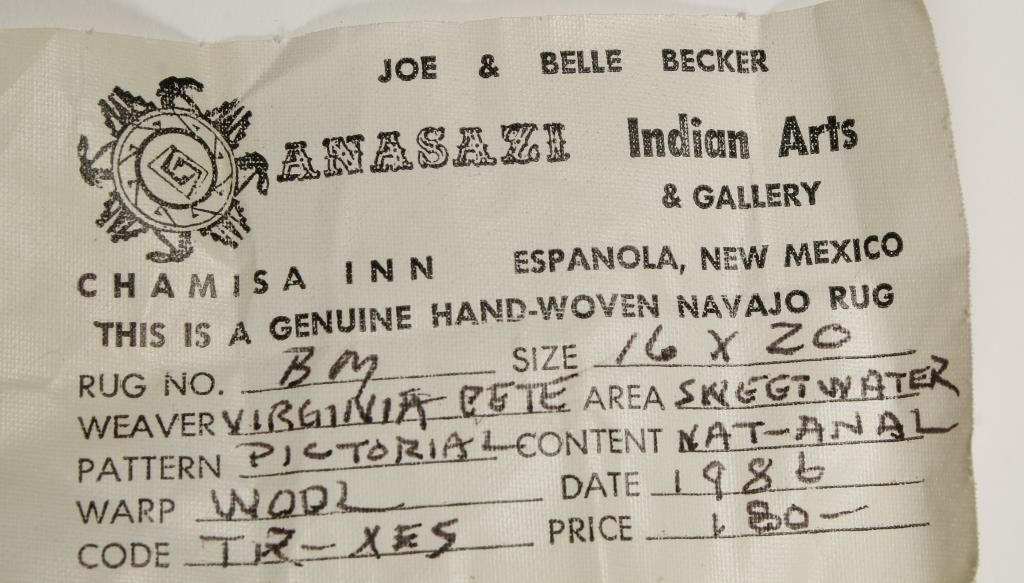 JOE & BELLE BECKER
ANASAZI Indian Arts
& GALLERY
CHAMISA INN ESPANOLA, NEW MEXICO
THIS IS A GENUINE HAND-WOVEN NAVAJO RUG
RUG NO. BM SIZE 16 X 20
WEAVER VIRGINIA PETE AREA SWEETWATER
PATTERN PICTORIAL CONTENT NAT-ANAL
WARP WOOL DATE 1986
CODE TR-XES PRICE 180-